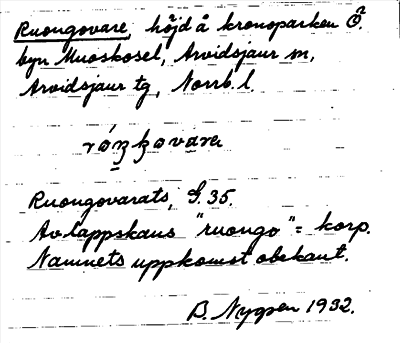 Ruongovare, höjd å kronoparken Ö.
byn Muoskosel, Arvidsjaur sn,
Arvidsjaur tg, Norrb. l.
Ruongovarats, G. 35.
Av lappskans "ruongo" = korp.
Namnets uppkomst obekant.
B. Nygren 1932.